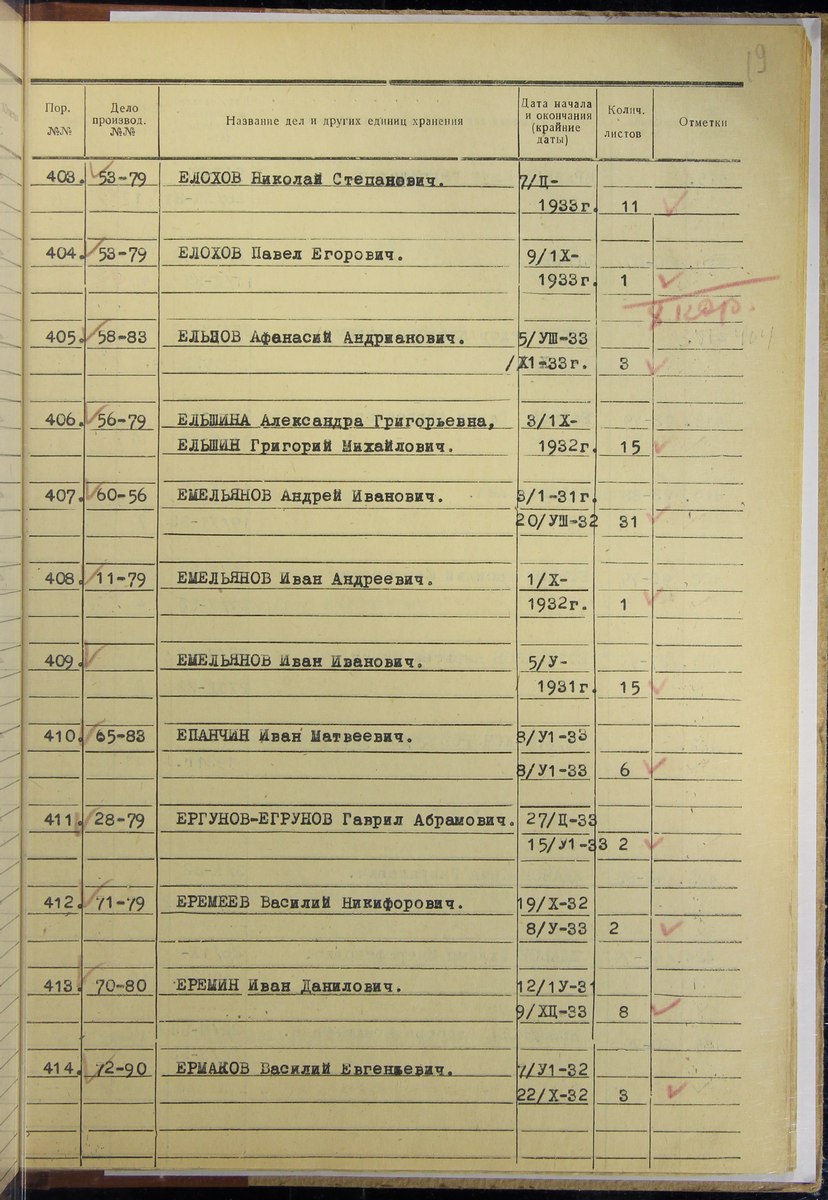 19
Пор. №№ Дело производ. №№ Название дел и других единиц хранения Дата начала и окончания (крайние даты) Колич. листов Отметки
403. 53-79 ЕЛОХОВ Николай Степанович. 7/Ц-
1933г. 11
404. 53-79 ЕЛОХОВ Павел Егорович. 9/1Х-
1933г. 1
кор.
405. 58-83 ЕЛЬПОВ Афанасий Андрианович. 5/УШ-33
/Х1-33г. 3
406. 56-79 ЕЛЬШИНА Александра Григорьевна, 3/1Х-
ЕЛЬШИН Григорий Михайлович. 1932г. 15
407. 60-56 ЕМЕЛЬЯНОВ Андрей Иванович. 3/1-31г.
20/УШ-32 31
408. 11-79 ЕМЕЛЬЯНОВ Иван Андреевич. 1/Х-
1932г. 1
409. ЕМЕЛЬЯНОВ Иван Иванович. 5/У-
1931г. 15
410. 65-83 ЕПАНЧИН Иван Матвеевич. 8/У1-33
8/У1-33 6
411. 28-79 ЕРГУНОВ-ЕГРУНОВ Гаврил Абрамович. 27/Ц-33
15/У1-33 2
412. 71-79 ЕРЕМЕЕВ Василий Никифорович. 19/Х-32
8/У-33 2
413. 70-80 ЕРЕМИН Иван Данилович. 12/1У-31
9/ХЦ-33 8
414. 72-90 ЕРМАКОВ Василий Евгеньевич. 7/У1-32
22/Х-32 3